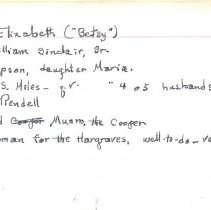 Elizabeth ("Betsy")
lliam Sinclair, Sr.
pson, daughter Maria.
S. Miles - q.v. " 4 or 5 husbands
Pendell
d Cooper Munro, the Cooper
oman for the Hargraves, well-to-do - ve